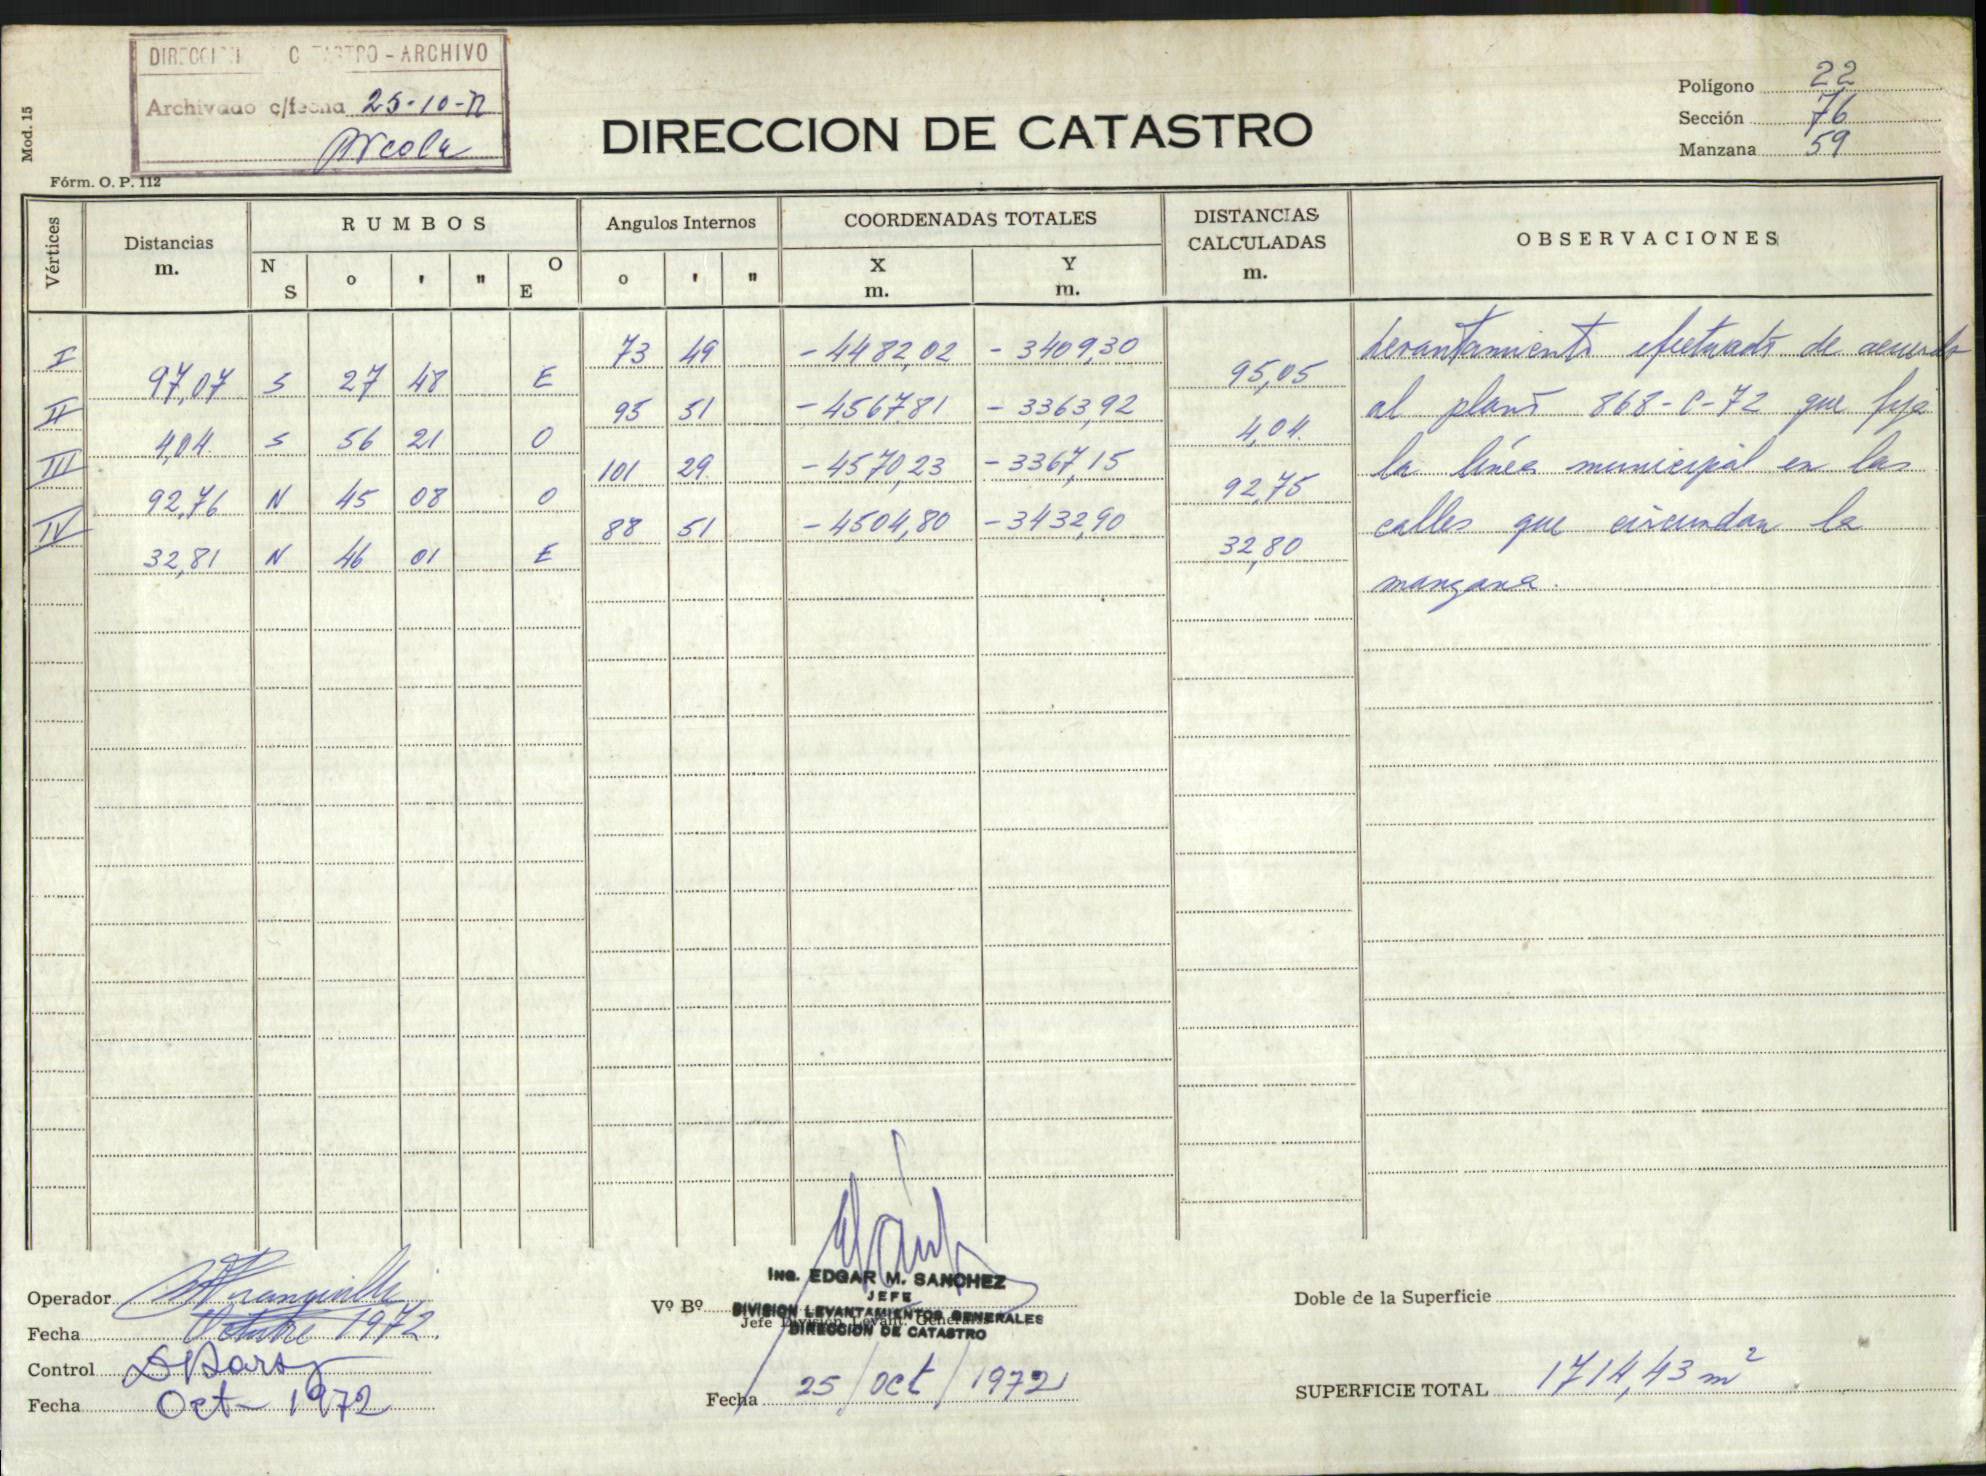 DIRECCION CATASTRO - ARCHIVO
Archivado c/fecha 25-10-72
Mod. 15
Fórm. O. P. 112
DIRECCION DE CATASTRO
Polígono 22
Sección 76
Manzana 59
Vértices
Distancias
m.
RUMBOS
N S o ' " O E
Angulos Internos
o ' "
COORDENADAS TOTALES
X
m.
Y
m.
DISTANCIAS
CALCULADAS
m.
OBSERVACIONES
I 73 49 -4482,02 -3409,30
97,07 S 27 48 E 95,05
II 95 51 -4567,81 -3363,92
4,04 S 56 21 O 4,04
III 101 29 -4570,23 -3367,15
92,76 N 45 08 O 92,75
IV 88 51 -4504,80 -3432,90
32,81 N 46 01 E 32,80
Levantamiento efectuado de acuerdo
al plano 868-C-72 que fija
la línea municipal en las
calles que circundan la
manzana.
Operador
Fecha Octubre 1972.
Control
Fecha Oct- 1972
Vº Bº
Ing. EDGAR M. SANCHEZ
JEFE
DIVISION LEVANTAMIENTOS GENERALES
Jefe Division Levant. Generales
DIRECCION DE CATASTRO
Fecha 25/Oct/1972
Doble de la Superficie
SUPERFICIE TOTAL 1714,43 m²